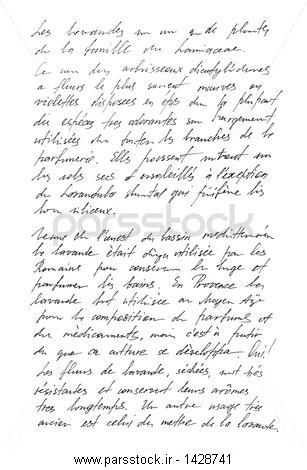 Les lavandes un de plantes
de la famille des Lamiaceae.
Ce des arbrisseaux dicotylédones
à fleurs le plus souvent mauves ou
violettes disposées en épis dont la plupart
des espèces très odorantes sont largement
utilisées dans toutes les branches de la
parfumerie. Elles poussent surtout sur
les sols secs et ensoleillés à l'exception
de Lavandula qui préfère les
siliceux.
Venue de l'ouest du bassin méditerranéen
la lavande était déjà utilisée par les
Romains pour conserver le linge et
parfumer les bains. En Provence la
lavande fut utilisée au Moyen Age
pour la composition de parfums et
de médicaments, mais c'est à partir
du que sa culture se développa. Oui!
Les fleurs de lavande, séchées, sont très
résistantes et conservent leurs arômes
très longtemps. Un autre usage très
ancien est celui de mettre de la lavande
parsstock
www.parsstock.ir - 1428741